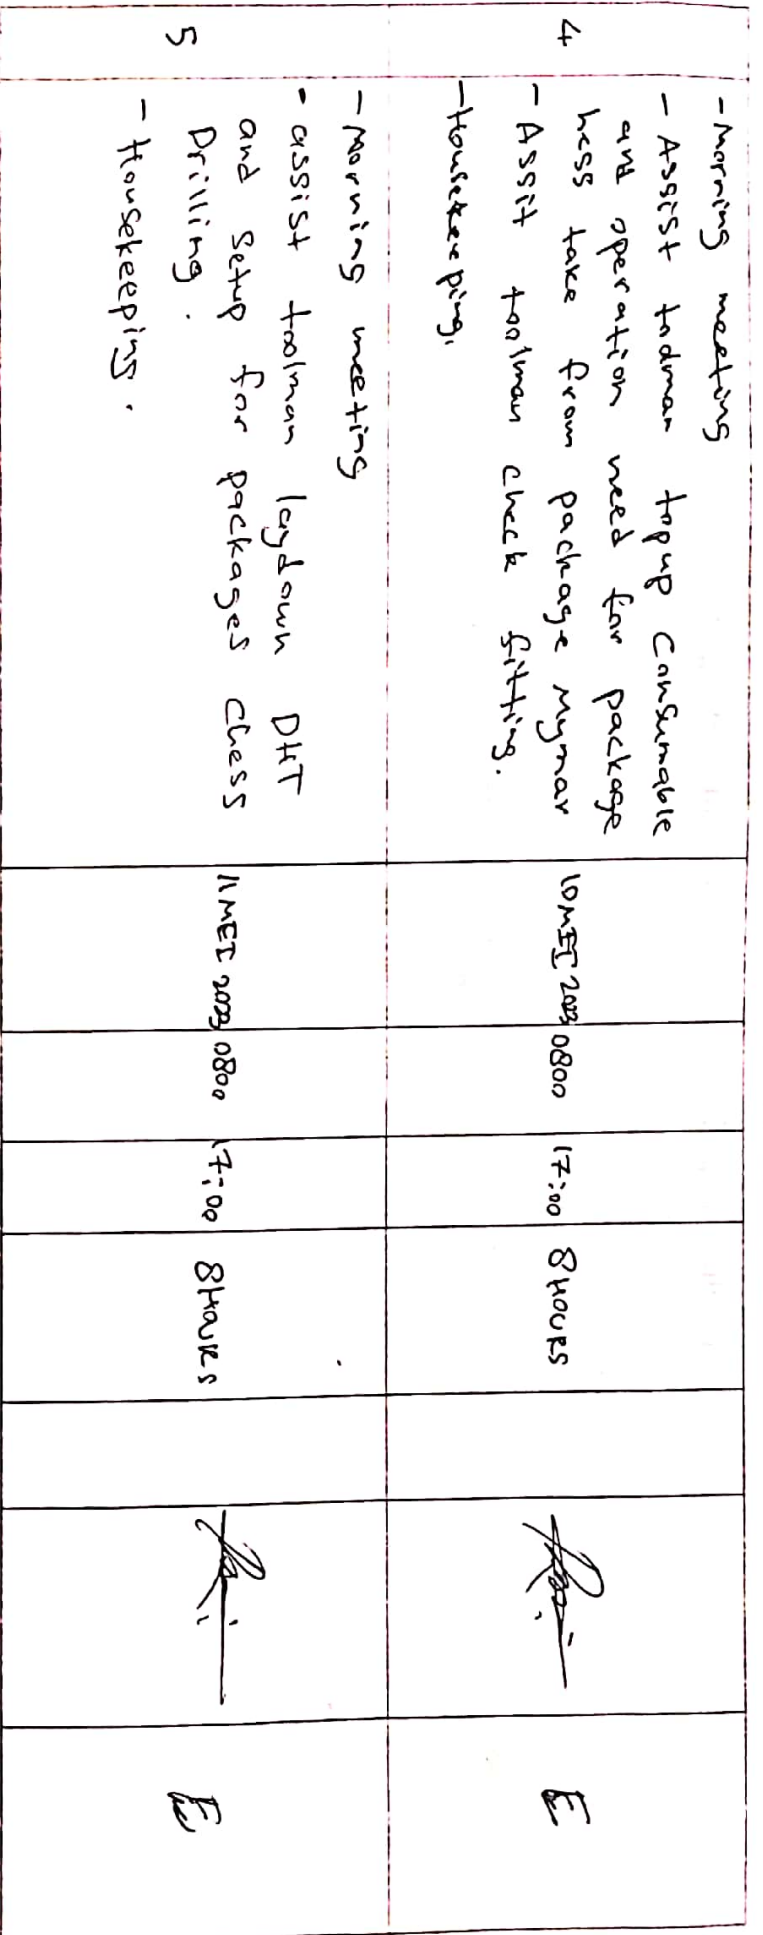 4
- Morning meeting
- Assist toolman topup Consumable
and operation need for package
hess take from package Mymar
- Assit toolman check fitting.
- Housekeeping.
10 MEI 2023
0800
17:00
8 HOURS
E
5
- Morning meeting
- assist toolman laydown DHT
and Setup for packages Chess
Drilling.
- Housekeeping.
11 MEI 2023
0800
17:00
8 HOURS
E